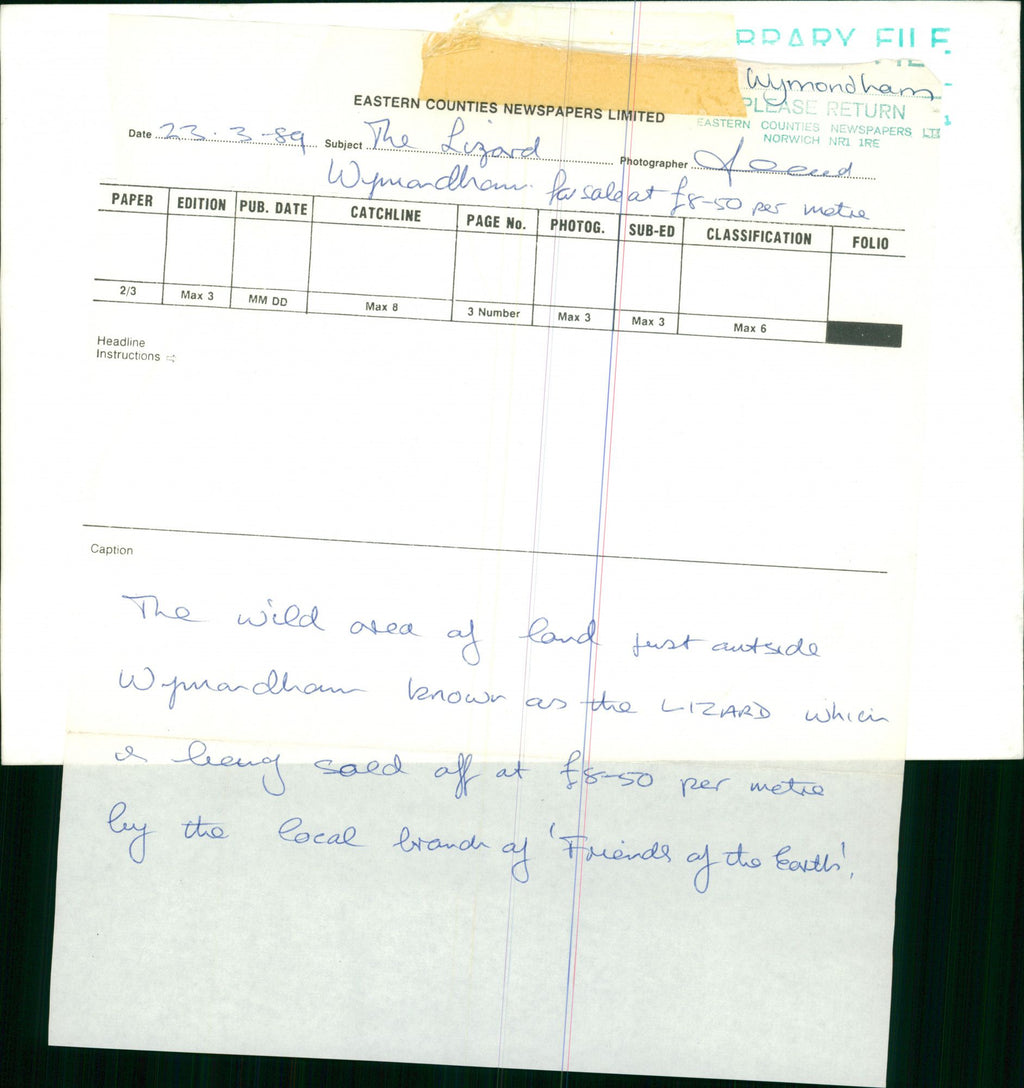 LIBRARY FILE
Wymondham
PLEASE RETURN
EASTERN COUNTIES NEWSPAPERS LTD
NORWICH NR1 1RE
EASTERN COUNTIES NEWSPAPERS LIMITED
Date 23.3-89 Subject The Lizard Photographer
Wymondham. for sale at £8-50 per metre
PAPER EDITION PUB. DATE CATCHLINE PAGE No. PHOTOG. SUB-ED CLASSIFICATION FOLIO
2/3 Max 3 MM DD Max 8 3 Number Max 3 Max 3 Max 6
Headline
Instructions
Caption
The wild area of land just outside
Wymondham known as the LIZARD which
is being sold off at £8-50 per metre
by the local branch of 'Friends of the Earth'.